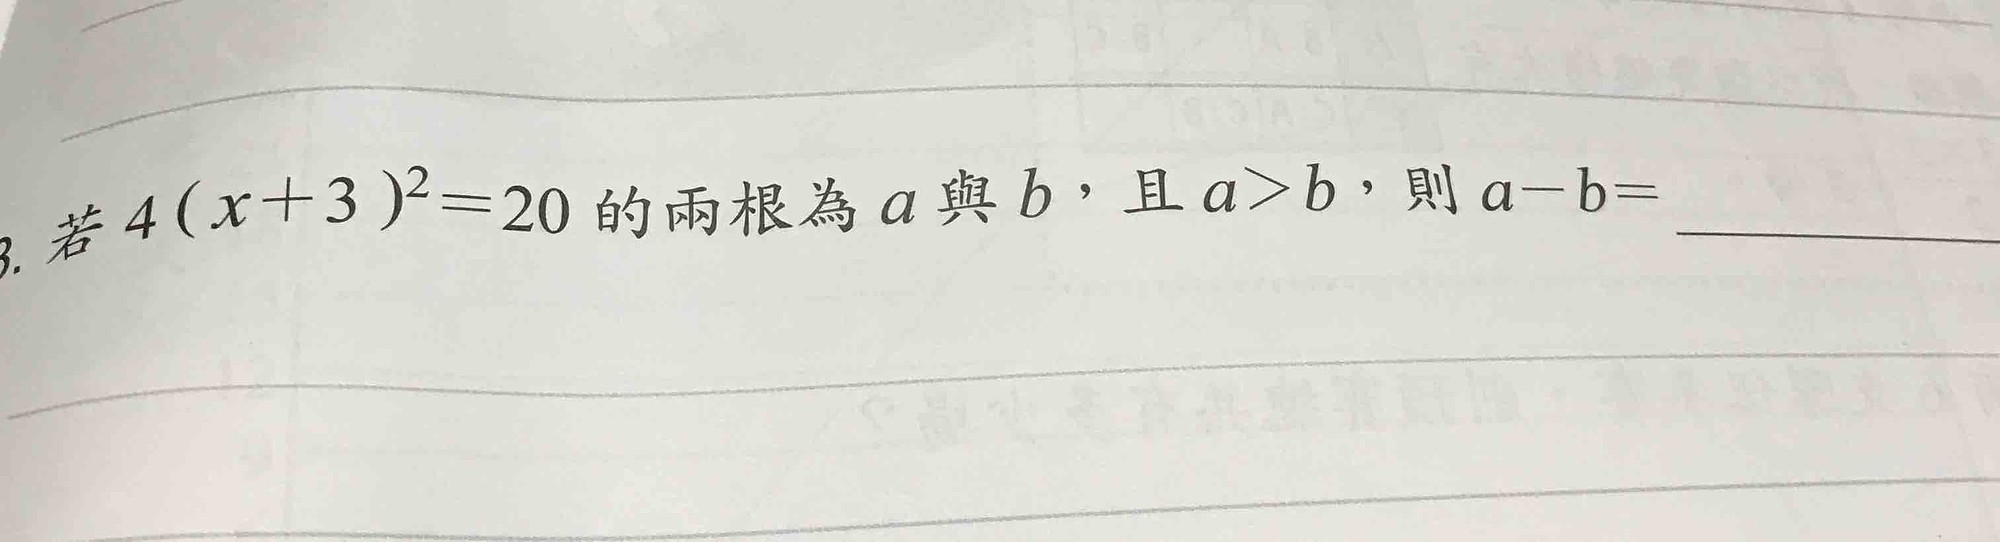 3. 若 4(x+3)²=20 的兩根為 a 與 b，且 a>b，則 a-b=